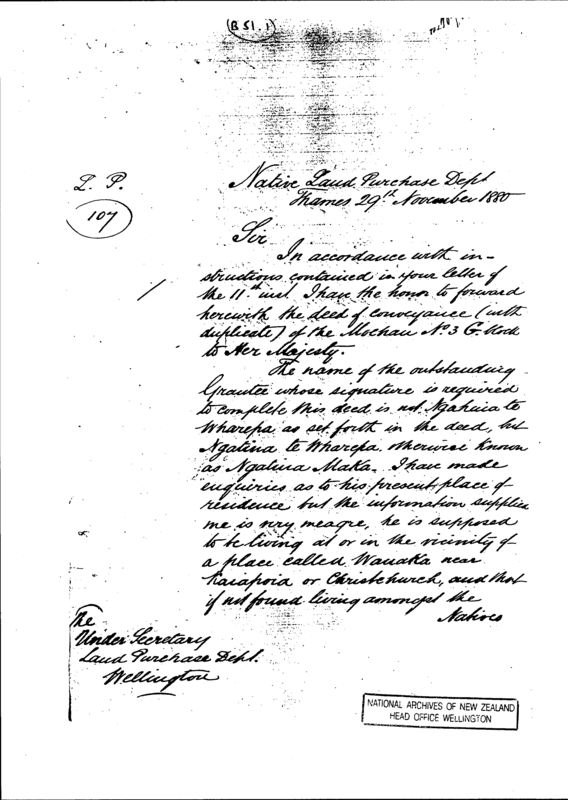 (B 51. 1)
L. P.
107
Native Land Purchase Dept
Thames 29th November 1880
Sir
In accordance with in-
structions contained in your letter of
the 11th inst. I have the honor to forward
herewith the deed of conveyance (with
duplicate) of the Moehau No 3 G. block
to Her Majesty.
The name of the outstanding
Grantee whose signature is required
to complete this deed is not Ngahuia te
Wharepa as set forth in the deed, but
Ngatina te Wharepa, otherwise known
as Ngatina Maka. I have made
enquiries as to his present place of
residence but the information supplied
me is very meagre, he is supposed
to be living at or in the vicinity of
a place called Wanaka near
Kaiapoia or Christchurch, and that
if not found living amongst the
Natives
The
Under Secretary
Land Purchase Dept.
Wellington
NATIONAL ARCHIVES OF NEW ZEALAND
HEAD OFFICE WELLINGTON